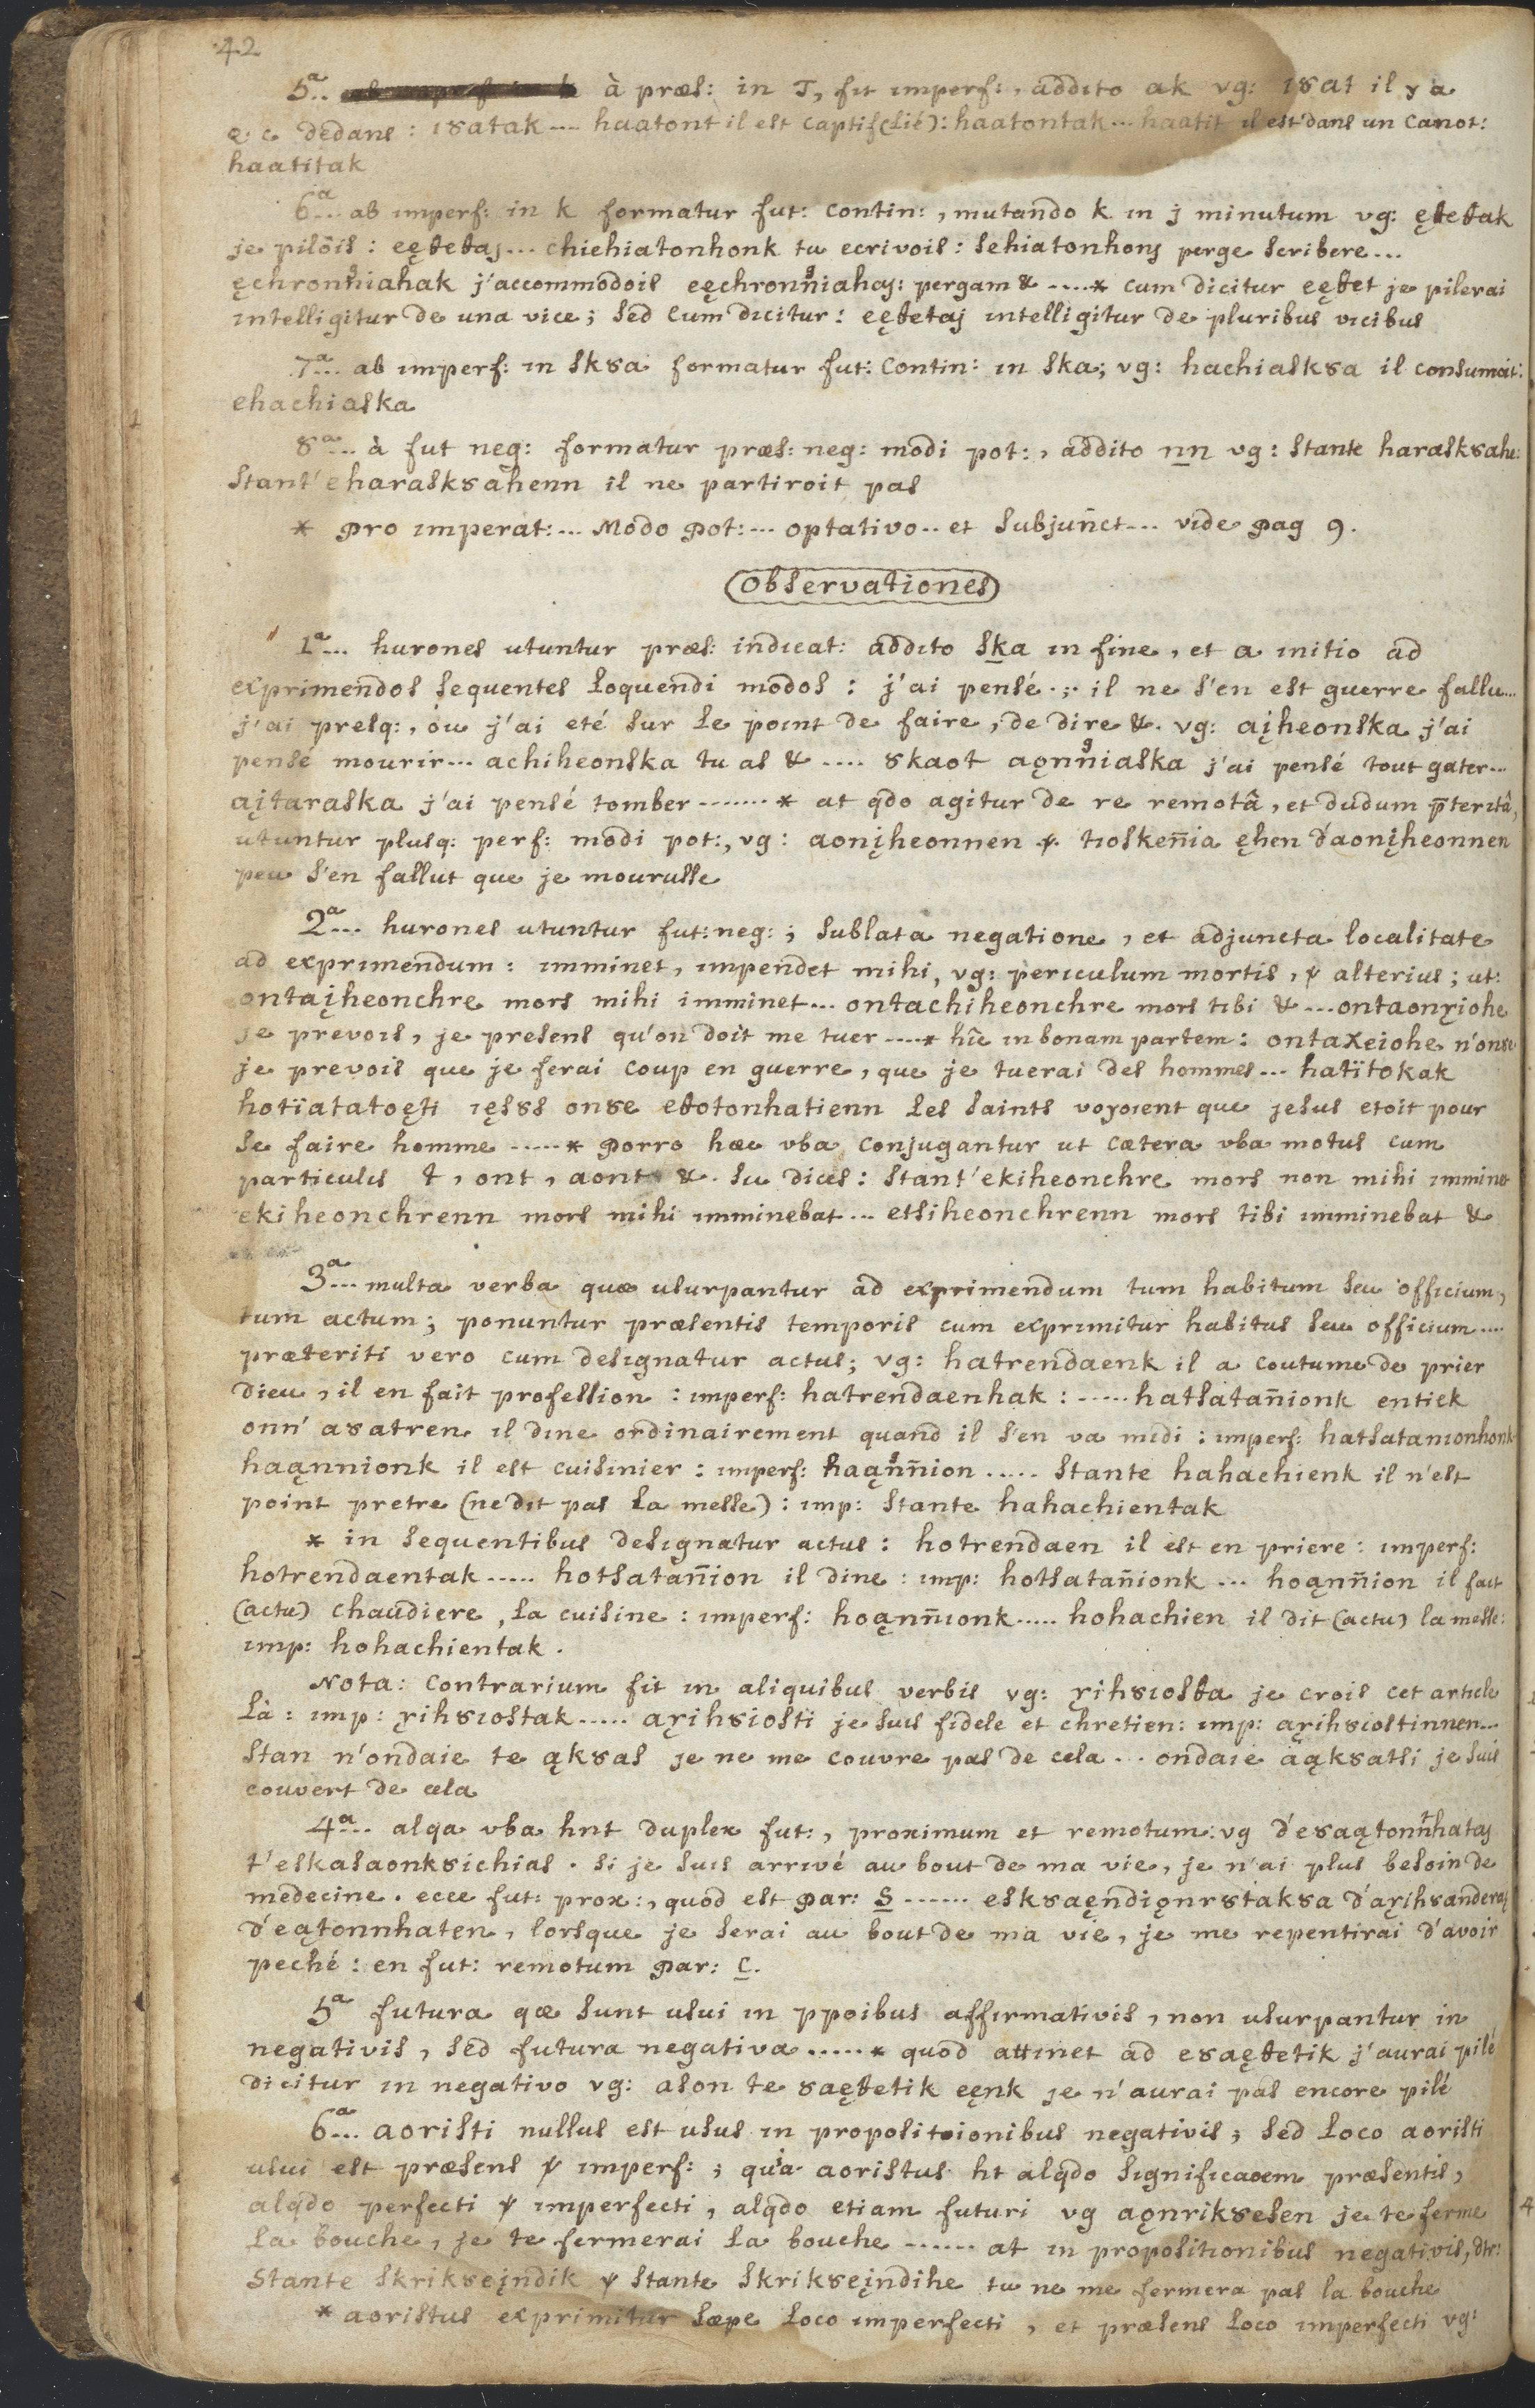 42
5ª.. à præs: in T, fit imperf:, addito ak vg: ȣat il y a
q: c dedans: ȣatak --- haatont il est captif (lié): haatontak... haatit il est dans un canot:
haatitak
6ª... ab imperf: in k formatur fut: contin:, mutando k in j minutum vg: ęteθak
je pilois: eęteθaj... chiehiatonhonk tu ecrivois: sehiatonhonj perge scribere...
ęchronñiahak j'accommodois eęchronñiahaj: pergam & ....* cum dicitur eęθet je pilerai
intelligitur de una vice; sed cum dicitur: eęθetaj intelligitur de pluribus vicibus
7ª... ab imperf: in skȣa formatur fut: contin: in ska; vg: hachiaskȣa il consumoit:
ehachiaska
8ª... à fut neg: formatur præs: neg: modi pot:, addito nn vg: stante haraskȣahe:
stant'eharaskȣahenn il ne partiroit pas
* pro imperat:... modo pot:... optativo.. et subjunct... vide pag 9.
Observationes
1ª... hurones utuntur præs: indicat: addito ska in fine, et a initio ad
exprimendos sequentes loquendi modos: j'ai pensé.;. il ne s'en est guerre fallu...
j'ai presq:, ou j'ai eté sur le point de faire, de dire &. vg: aįheonska j'ai
pensé mourir... achiheonska tu as & .... ȣkaot aǫnñiaska j'ai pensé tout gater...
aįtaraska j'ai pensé tomber ....... * at qdo agitur de re remotâ, et dudum p̄teritâ,
utuntur plusq: perf: modi pot:, vg: aonįheonnen ѱ. tioskeñia ęhen d'aonįheonnen
peu s'en fallut que je mourusse
2ª... hurones utuntur fut: neg:; sublata negatione, et adjuncta localitate
ad exprimendum: imminet, impendet mihi, vg: periculum mortis, ѱ alterius; ut:
ontaįheonchre mors mihi imminet... ontachiheonchre mors tibi & ... ontaonɣiohe
je prevois, je presens qu'on doit me tuer ....* hîc in bonam partem: ontaxeiohe n'onȣe
je prevois que je ferai coup en guerre, que je tuerai des hommes... hatïtokak
hotïatatoęti ięsȣs onȣe eθotonhatienn les saints voyoient que jesus etoit pour
se faire homme .....* porro hæc vba conjugantur ut cætera vba motus cum
particulis t, ont, aont &. sic dices: stant'ekiheonchre mors non mihi imminet
ekiheonchrenn mors mihi imminebat... etsiheonchrenn mors tibi imminebat &
3ª... multa verba quæ usurpantur ad exprimendum tum habitum seu officium,
tum actum; ponuntur præsentis temporis cum exprimitur habitus seu officium....
præteriti vero cum designatur actus; vg: hatrendaenk il a coutume de prier
dieu, il en fait profession: imperf: hatrendaenhak: ..... hatsatañionk entiek
onn'aȣatren il dine ordinairement quand il s'en va midi: imperf: hatsatanionhonk
haąnnionk il est cuisinier: imperf: haąnñion ..... stante hahachienk il n'est
point pretre (ne dit pas la messe): imp: stante hahachientak
* in sequentibus designatur actus: hotrendaen il est en priere: imperf:
hotrendaentak ..... hotsatañion il dine: imp: hotsatañionk ... hoąnñion il fait
(actu) chaudiere, la cuisine: imperf: hoąnñionk ..... hohachien il dit (actu) la messe:
imp: hohachientak.
Nota: contrarium fit in aliquibus verbis vg: ɣihȣiosθa je crois cet article
là: imp: ɣihȣiostak ..... aɣihȣiosti je suis fidele et chretien: imp: aɣihȣiostinnen...
stan n'ondaie te ąkȣas je ne me couvre pas de cela... ondaie aąkȣatsi je suis
couvert de cela
4ª... alqa vba hnt duplex fut:, proximum et remotum: vg d'eȣaątonnhataj
t'eskaȣaonkȣichias. si je suis arrivé au bout de ma vie, je n'ai plus besoin de
medecine. ecce fut: prox:, quod est par: S ...... eskȣaęndiǫnrȣtakȣa d'aɣihȣanderaj
d'eątonnhaten, lorsque je serai au bout de ma vie, je me repentirai d'avoir
peché: en fut: remotum par: C.
5ª futura qæ sunt usui in ppoibus affirmativis, non usurpantur in
negativis, sed futura negativa .....* quod attinet ad eȣaęθetik j'aurai pilé
dicitur in negativo vg: ason te ȣaęθetik eęnk je n'aurai pas encore pilé
6ª... aoristi nullus est usus in propositionibus negativis; sed loco aoristi
usui est præsens ѱ imperf:; quia aoristus ht alqdo significaoem præsentis,
alqdo perfecti ѱ imperfecti, alqdo etiam futuri vg aǫnrikȣesen je te ferme
la bouche, je te fermerai la bouche ...... at in propositionibus negativis, dtr:
stante skrikȣeįndik ѱ stante skrikȣeįndihe tu ne me fermera pas la bouche
* aoristus exprimitur sæpe loco imperfecti, et præsens loco imperfecti vg: